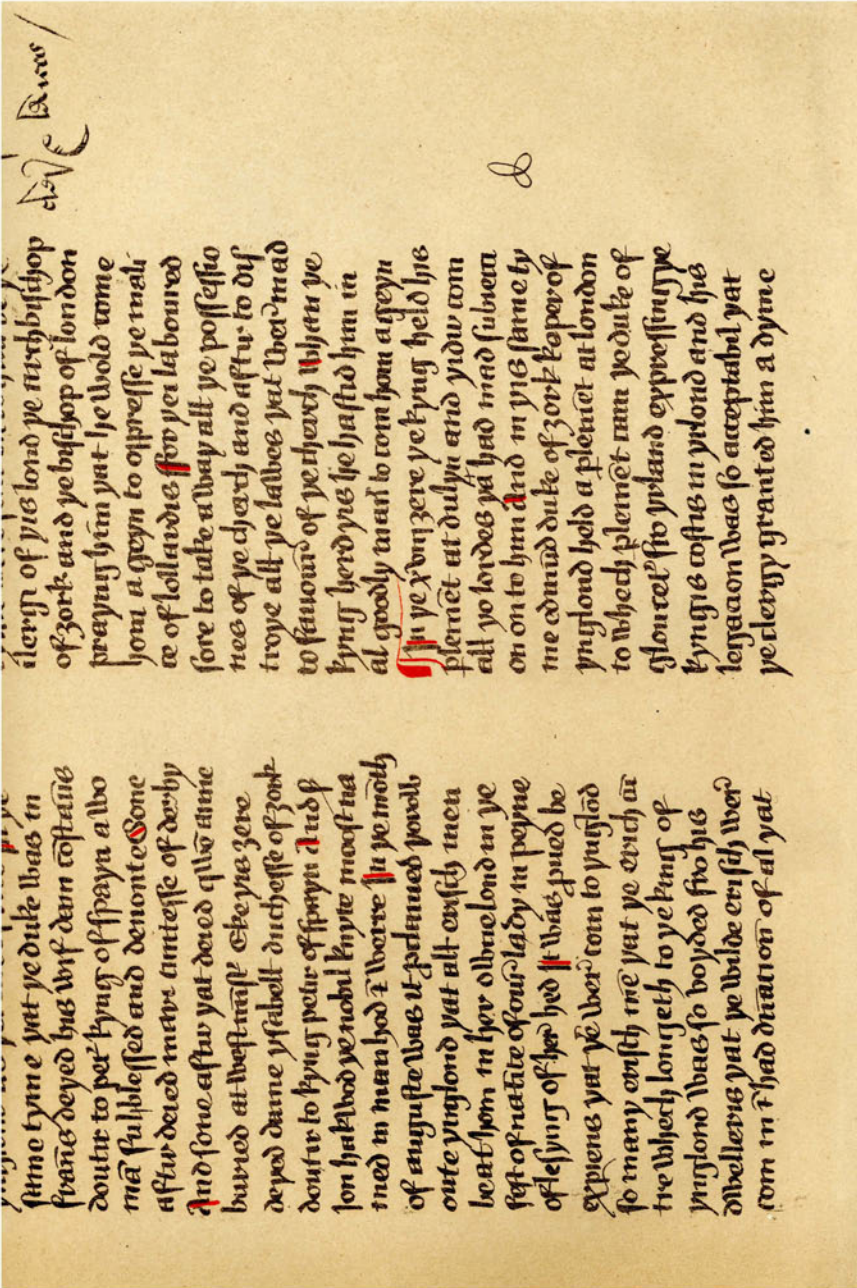 same tyme yat ye duke was in
frauns deyed his wif dam costauns
douter to petir kyng of spayn a wo
mā ful blessed and deuoute Sone
after deied mary cuntesse of derby
And sone after yat deied qwē anne
buried at westmist Eke yis zere
deyed dame ysabell duchesse of zork
doutir to kyng petir of spayn And ser
jon hakwod ye nobil knyte moost na
med in manhod ī werre In ye moth
of auguste was it proclamed yorow
oute ynglond yat alle erisch men
be at hom in her owne lond in ye
fest of natiuite of our lady in peyne
of lesyng of her hed It was preued be
expiens yat yer wer com to ynglōd
so many erisch mē yat ye erisch cū
tre whech longeth to ye kyng of
ynglond was so voyded fro his
dwelleris yat ye wilde erisch wer
com in ī had dnacion of al yat
clergi of yis lond ye archbisshop
of zork and ye bisshop of london
praying him yat he wold come
hom ageyn to oppresse ye mali
ce of lollardis ffor yei laboured
sore to take away all ye possessio
nes of ye cherch and aftir to dis
troye all ye lawes yat wer mad
to fauour of ye cherch Whan ye
kyng herd yis he hastid him in
al goodly maner to com hom ageyn
In ye xviii zere ye kyng held his
plemēt at dulyn and yidir com
all yo lordes yat had mad subieccī
on onto him And in yis same ty
me edmūd duke of zork keper of
ynglond held a plemēt at london
to whech plemēt cam ye duke of
glouceter fro yrland expressing ye
kyngis costis in yrlond and his
legacion was so acceptabil yat
ye clergy granted him a dyme